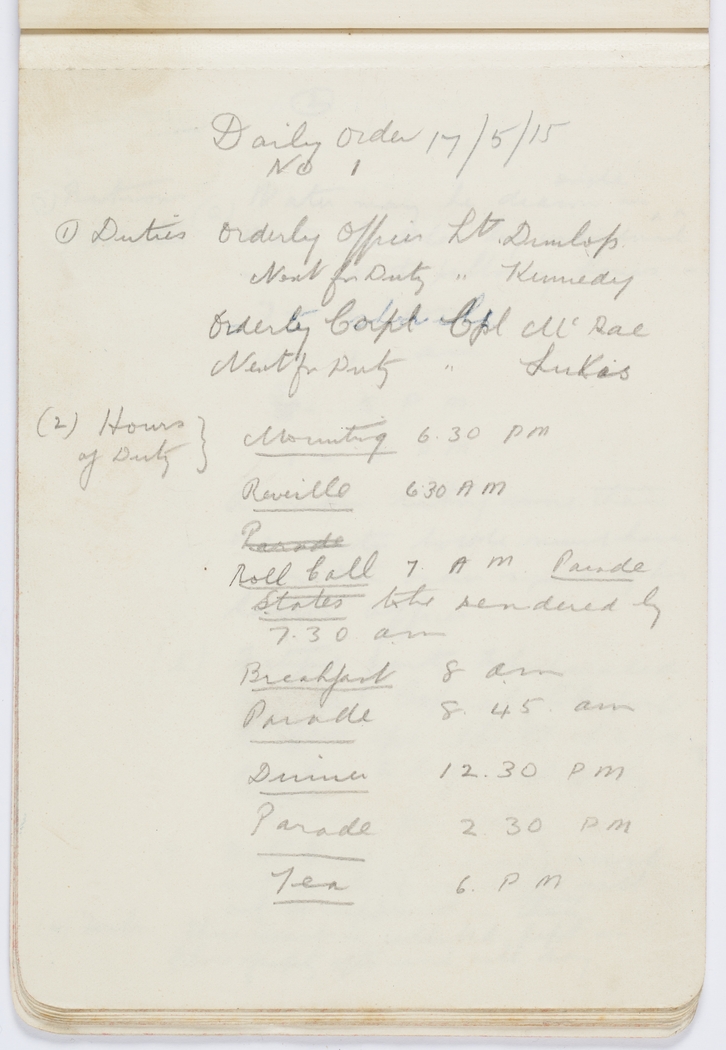 Daily Order 17/5/15
No 1
① Duties Orderly Officer Lt. Dunlop.
Next for Duty " Kennedy
Orderly Corpl Cpl McRae
Next for Duty " Lukis
(2) Hours of Duty } Mounting 6.30 PM
Reveille 630 AM
Parade
Roll Call 7. AM Parade
States to be rendered by
7.30 am
Breakfast 8 am
Parade 8.45 am
Dinner 12.30 PM
Parade 2.30 PM
Tea 6. PM